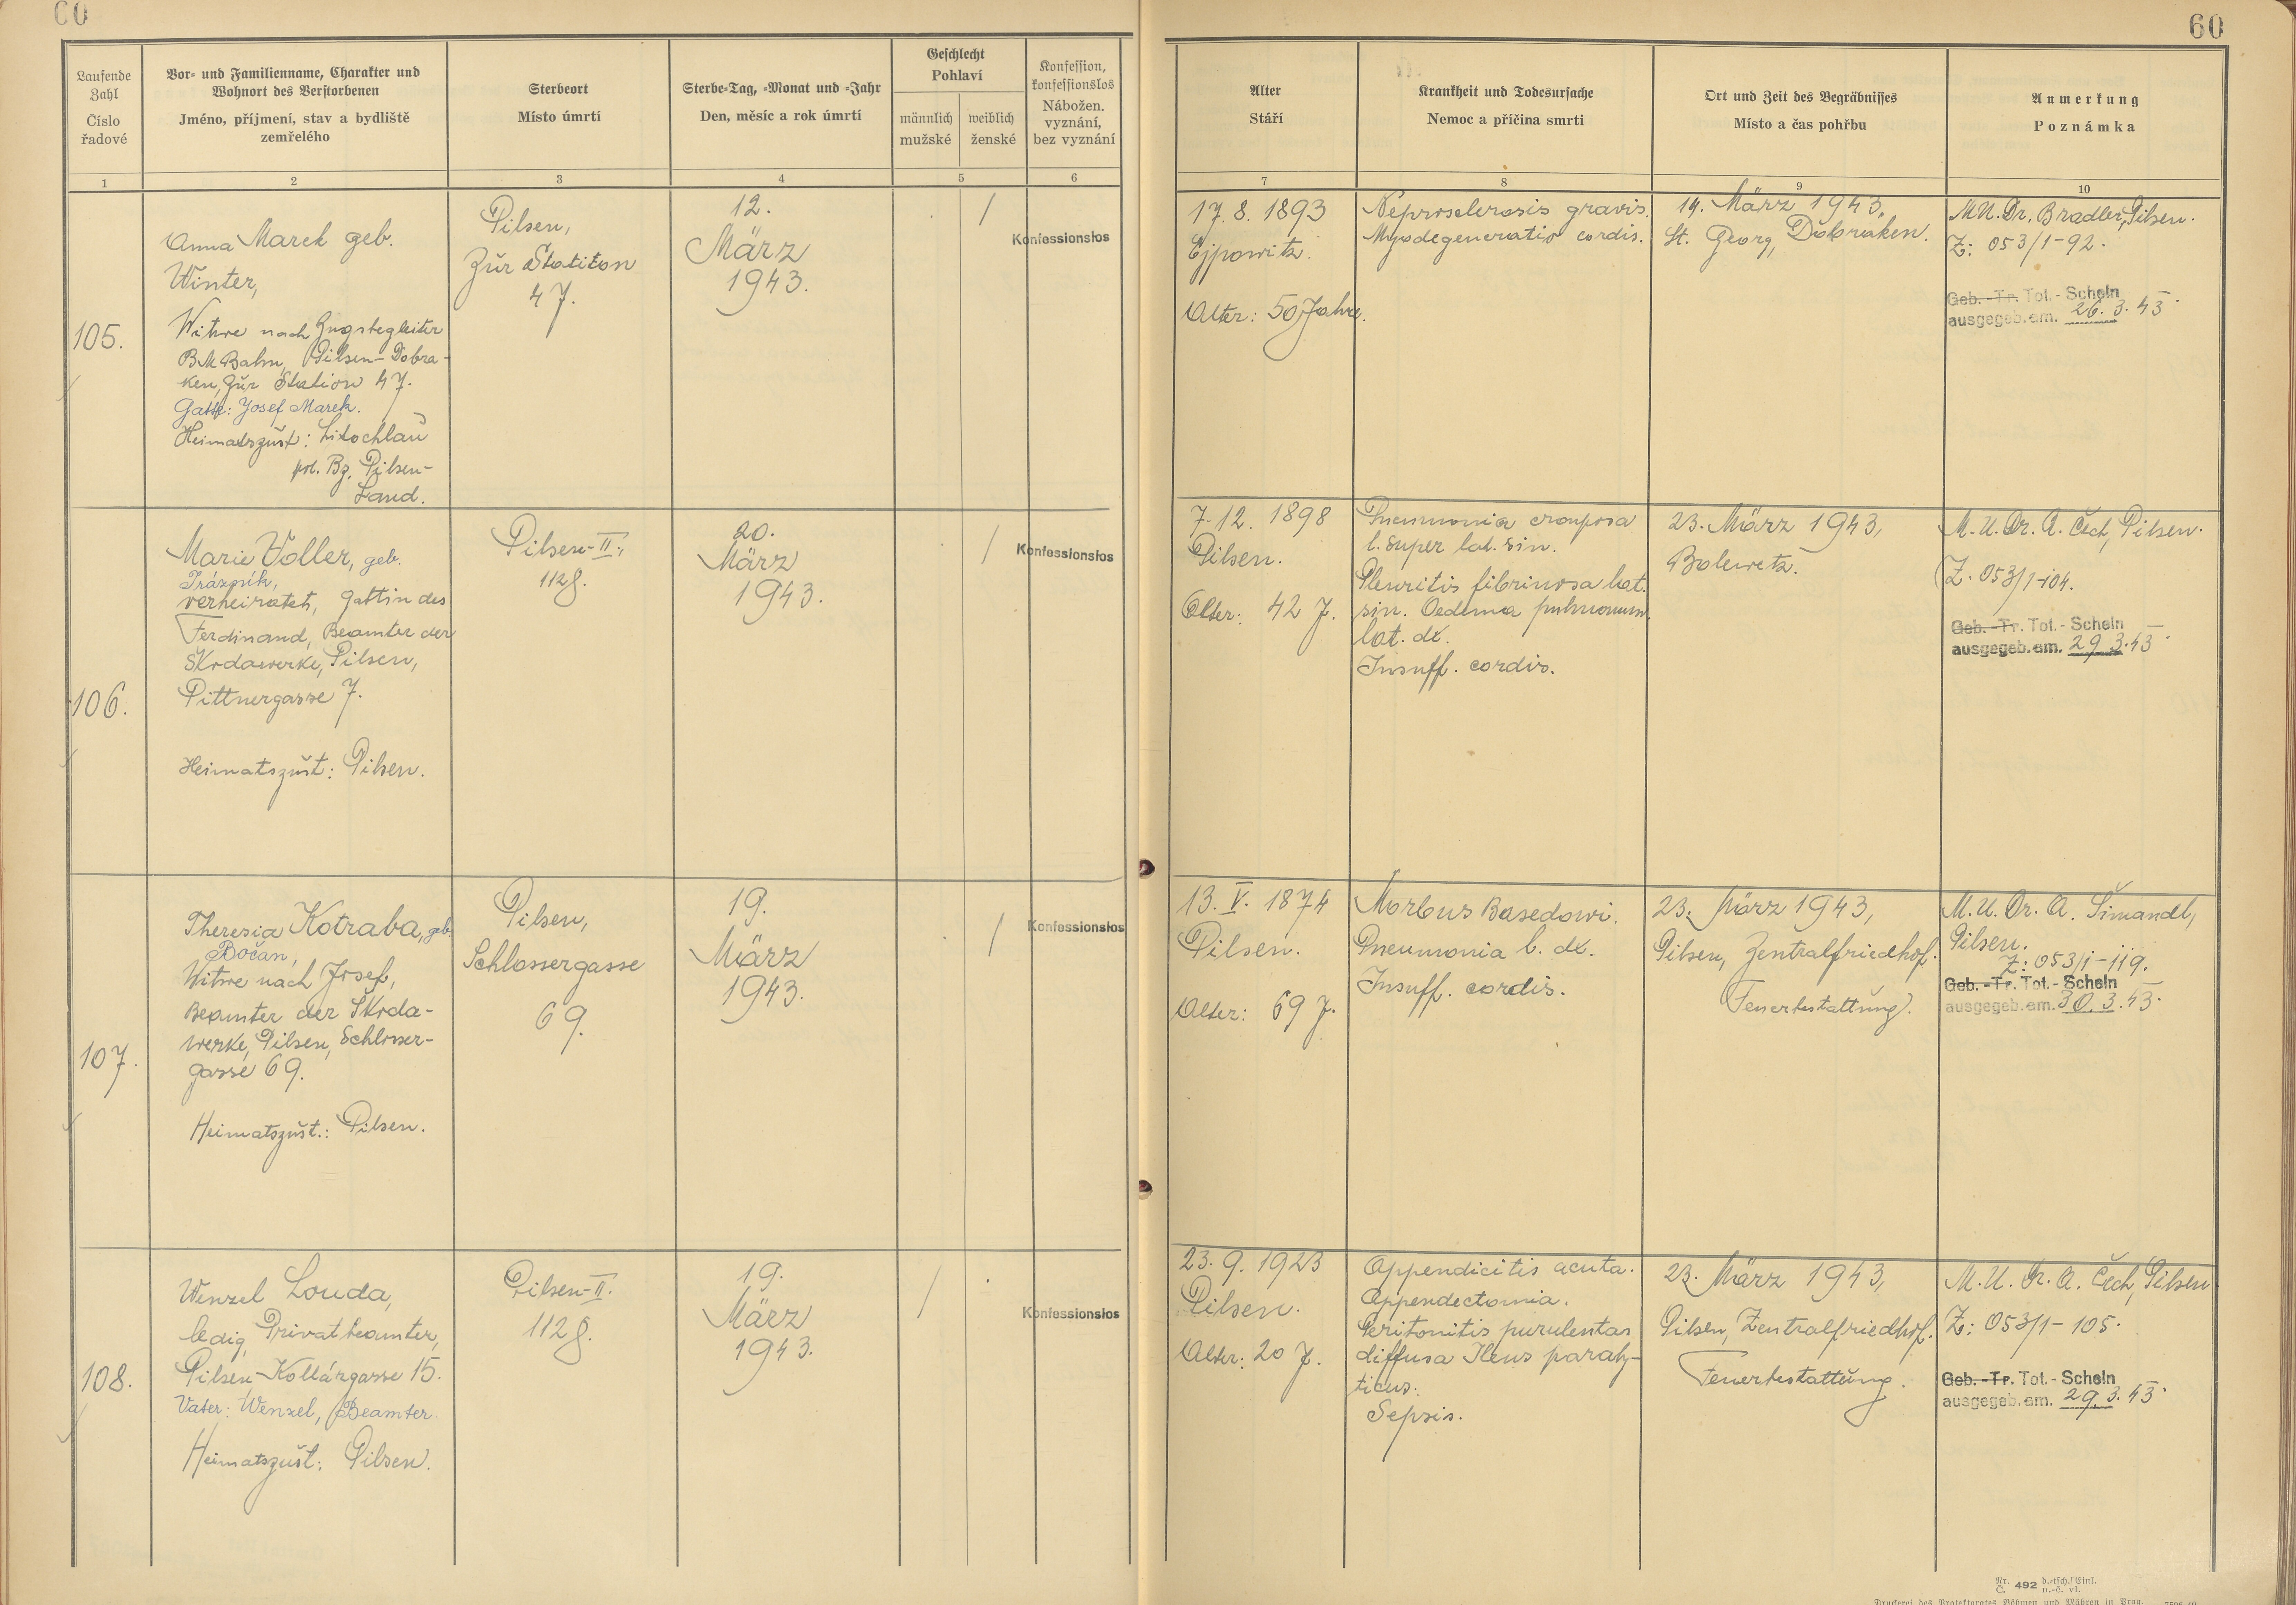 60
60
Laufende
Zahl
Číslo
řadové
Vor- und Familienname, Charakter und
Wohnort des Verstorbenen
Jméno, příjmení, stav a bydliště
zemřelého
Sterbeort
Místo úmrtí
Sterbe-Tag, -Monat und -Jahr
Den, měsíc a rok úmrtí
Geschlecht
Pohlaví
männlich
mužské
weiblich
ženské
Konfession,
konfessionslos
Nábožen.
vyznání,
bez vyznání
Alter
Stáří
Krankheit und Todesursache
Nemoc a příčina smrti
Ort und Zeit des Begräbnisses
Místo a čas pohřbu
Anmerkung
Poznámka
1
2
3
4
5
6
7
8
9
10
105.
Anna Marek geb.
Winter,
Witwe nach Zugsbegleiter
BM Bahn, Pilsen-Dobra-
ken, Zur Station 47.
Gatte: Josef Marek.
Heimatszust: Litochlau
pol. Bz. Pilsen-
Land.
Pilsen,
Zur Station
47.
12.
März
1943.
/
Konfessionslos
17. 8. 1893
Ejpowitz.
Alter: 50 Jahre.
Neprosclerosis gravis.
Myodegeneratio cordis.
14. März 1943,
St. Georg, Dobraken.
MU. Dr. Bradler, Pilsen.
Z: 053/1-92.
Geb. -Tr. Tot.- Schein
ausgegeb. am. 26. 3. 43
106.
Marie Voller, geb.
Prázník,
verheiratet, Gattin des
Ferdinand, Beamter der
Škodawerke, Pilsen,
Pittnergasse 7.
Heimatszust: Pilsen.
Pilsen-II.,
1128.
20.
März
1943.
/
Konfessionslos
7. 12. 1898
Pilsen.
Alter: 42 J.
Pneumonia crouposa
l. super lat. sin.
Pleuritis fibrinosa lat.
sin. Oedema pulmonum
lat. dx.
Insuff. cordis.
23. März 1943,
Bolewetz.
M. U. Dr. A. Čech, Pilsen.
Z. 053/1-104.
Geb. -Tr. Tot.- Schein
ausgegeb. am. 29. 3. 43
107.
Theresia Kotraba, geb.
Bočan,
Witwe nach Josef,
Beamter der Škoda-
werke, Pilsen, Schlosser-
gasse 69.
Heimatszust.: Pilsen.
Pilsen,
Schlossergasse
69.
19.
März
1943.
/
Konfessionslos
13. V. 1874
Pilsen.
Alter: 69 J.
Morbus Basedowi.
Pneumonia l. dx.
Insuff. cordis.
23. März 1943,
Pilsen, Zentralfriedhof.
Feuerbestattung.
M. U. Dr. A. Šimandl,
Pilsen.
Z: 053/1-119.
Geb. -Tr. Tot.- Schein
ausgegeb. am. 30. 3. 43.
108.
Wenzel Louda,
ledig, Privatbeamter,
Pilsen, Kollárgasse 15.
Vater: Wenzel, Beamter.
Heimatszust: Pilsen.
Pilsen-II.
1128.
19.
März
1943.
/
Konfessionslos
23. 9. 1923
Pilsen.
Alter: 20 J.
Appendicitis acuta.
Appendectomia.
Peritonitis purulentas
diffusa Ileus paraly-
ticus.
Sepsis.
23. März 1943,
Pilsen, Zentralfriedhof.
Feuerbestattung.
M. U. Dr. A. Čech, Pilsen
Z: 053/1-105.
Geb. -Tr. Tot.- Schein
ausgegeb. am. 29. 3. 43.
Nr. 492 d.-tsch. Einl.
Č. n.-č. vl.
Druckerei des Protektorates Böhmen und Mähren in Prag.